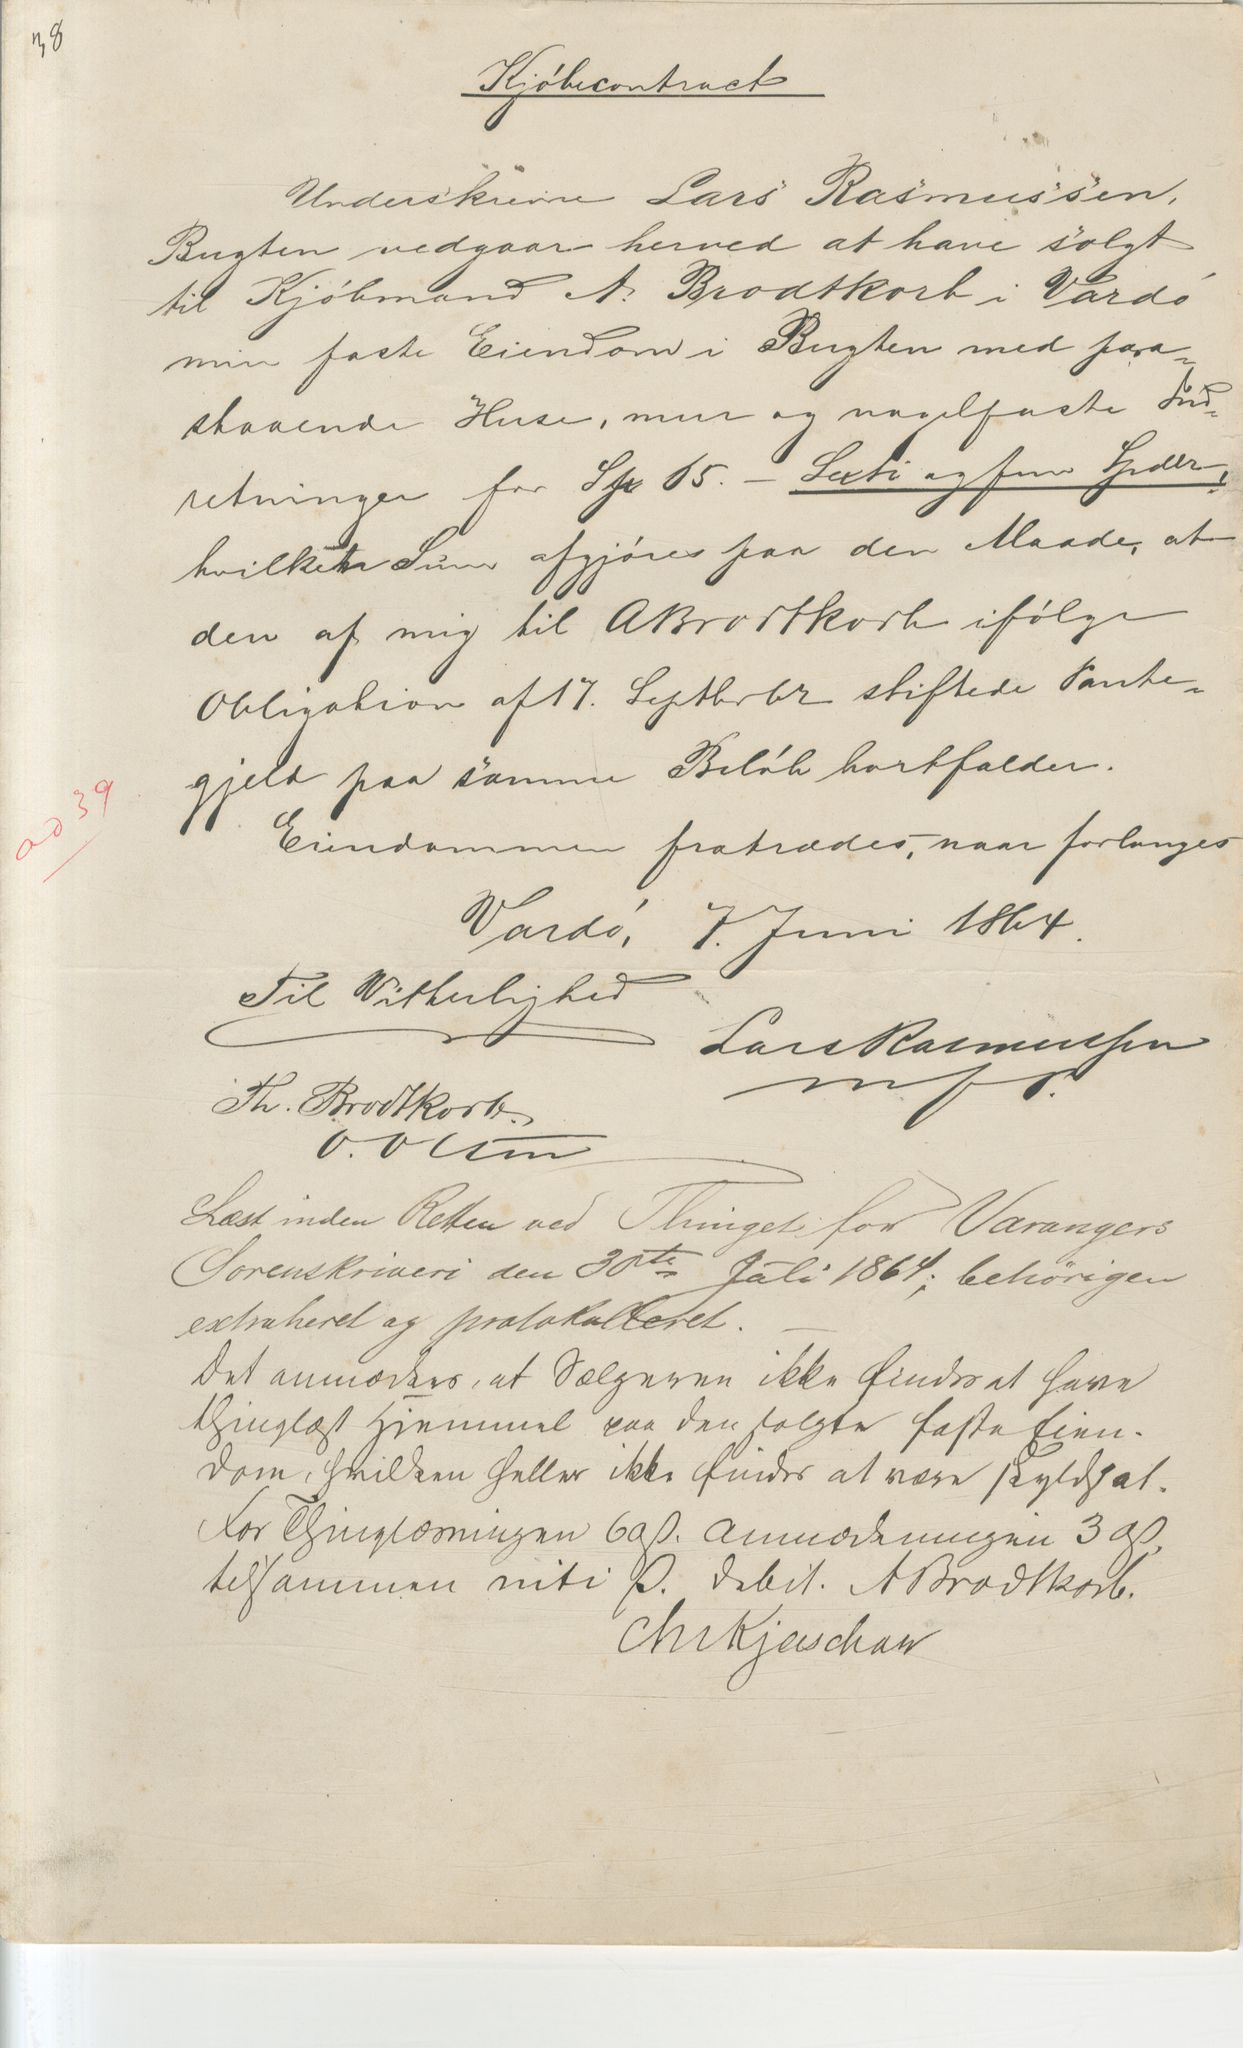 38
Kjöbecontract
Underskrevne Lars Rasmussen,
Bugten vedgaar herved at have solgt
til Kjöbmand A. Brodtkorb i Vardö
min faste Eiendom i Bugten med paa-
staaende Huse, mur og nagelfaste Ind-
retninger for Sp 65. — Sexti og fem Spdlr,
hvilken Sum afgjöres paa den Maade, at
den af mig til A Brodtkorb ifölge
Obligation af 17. Septbr 62 stiftede Pante-
gjeld paa samme Belöb bortfalder.
ad 39
Eiendommen fratrædes, naar forlanges
Vardö, 7. Juni 1864.
Til Vitterlighed
Lars Rasmussen
m f P.
Th. Brodtkorb.
O. Olsen
Læst inden Retten ved Thinget for Varangers
Sorenskriveri den 30te Juli 1864; behörigen
extraheret og protokolleret. —
Det anmærkes, at Sælgeren ikke findes at have
thinglæst Hjemmel paa den solgte faste Eien-
dom, hvilken heller ikke findes at være skyldsat.
For Thinglæsningen 60 ß. Anmærkningen 30 ß,
tilsammen niti ß. debit. A Brodtkorb.
Chr Kjerschow